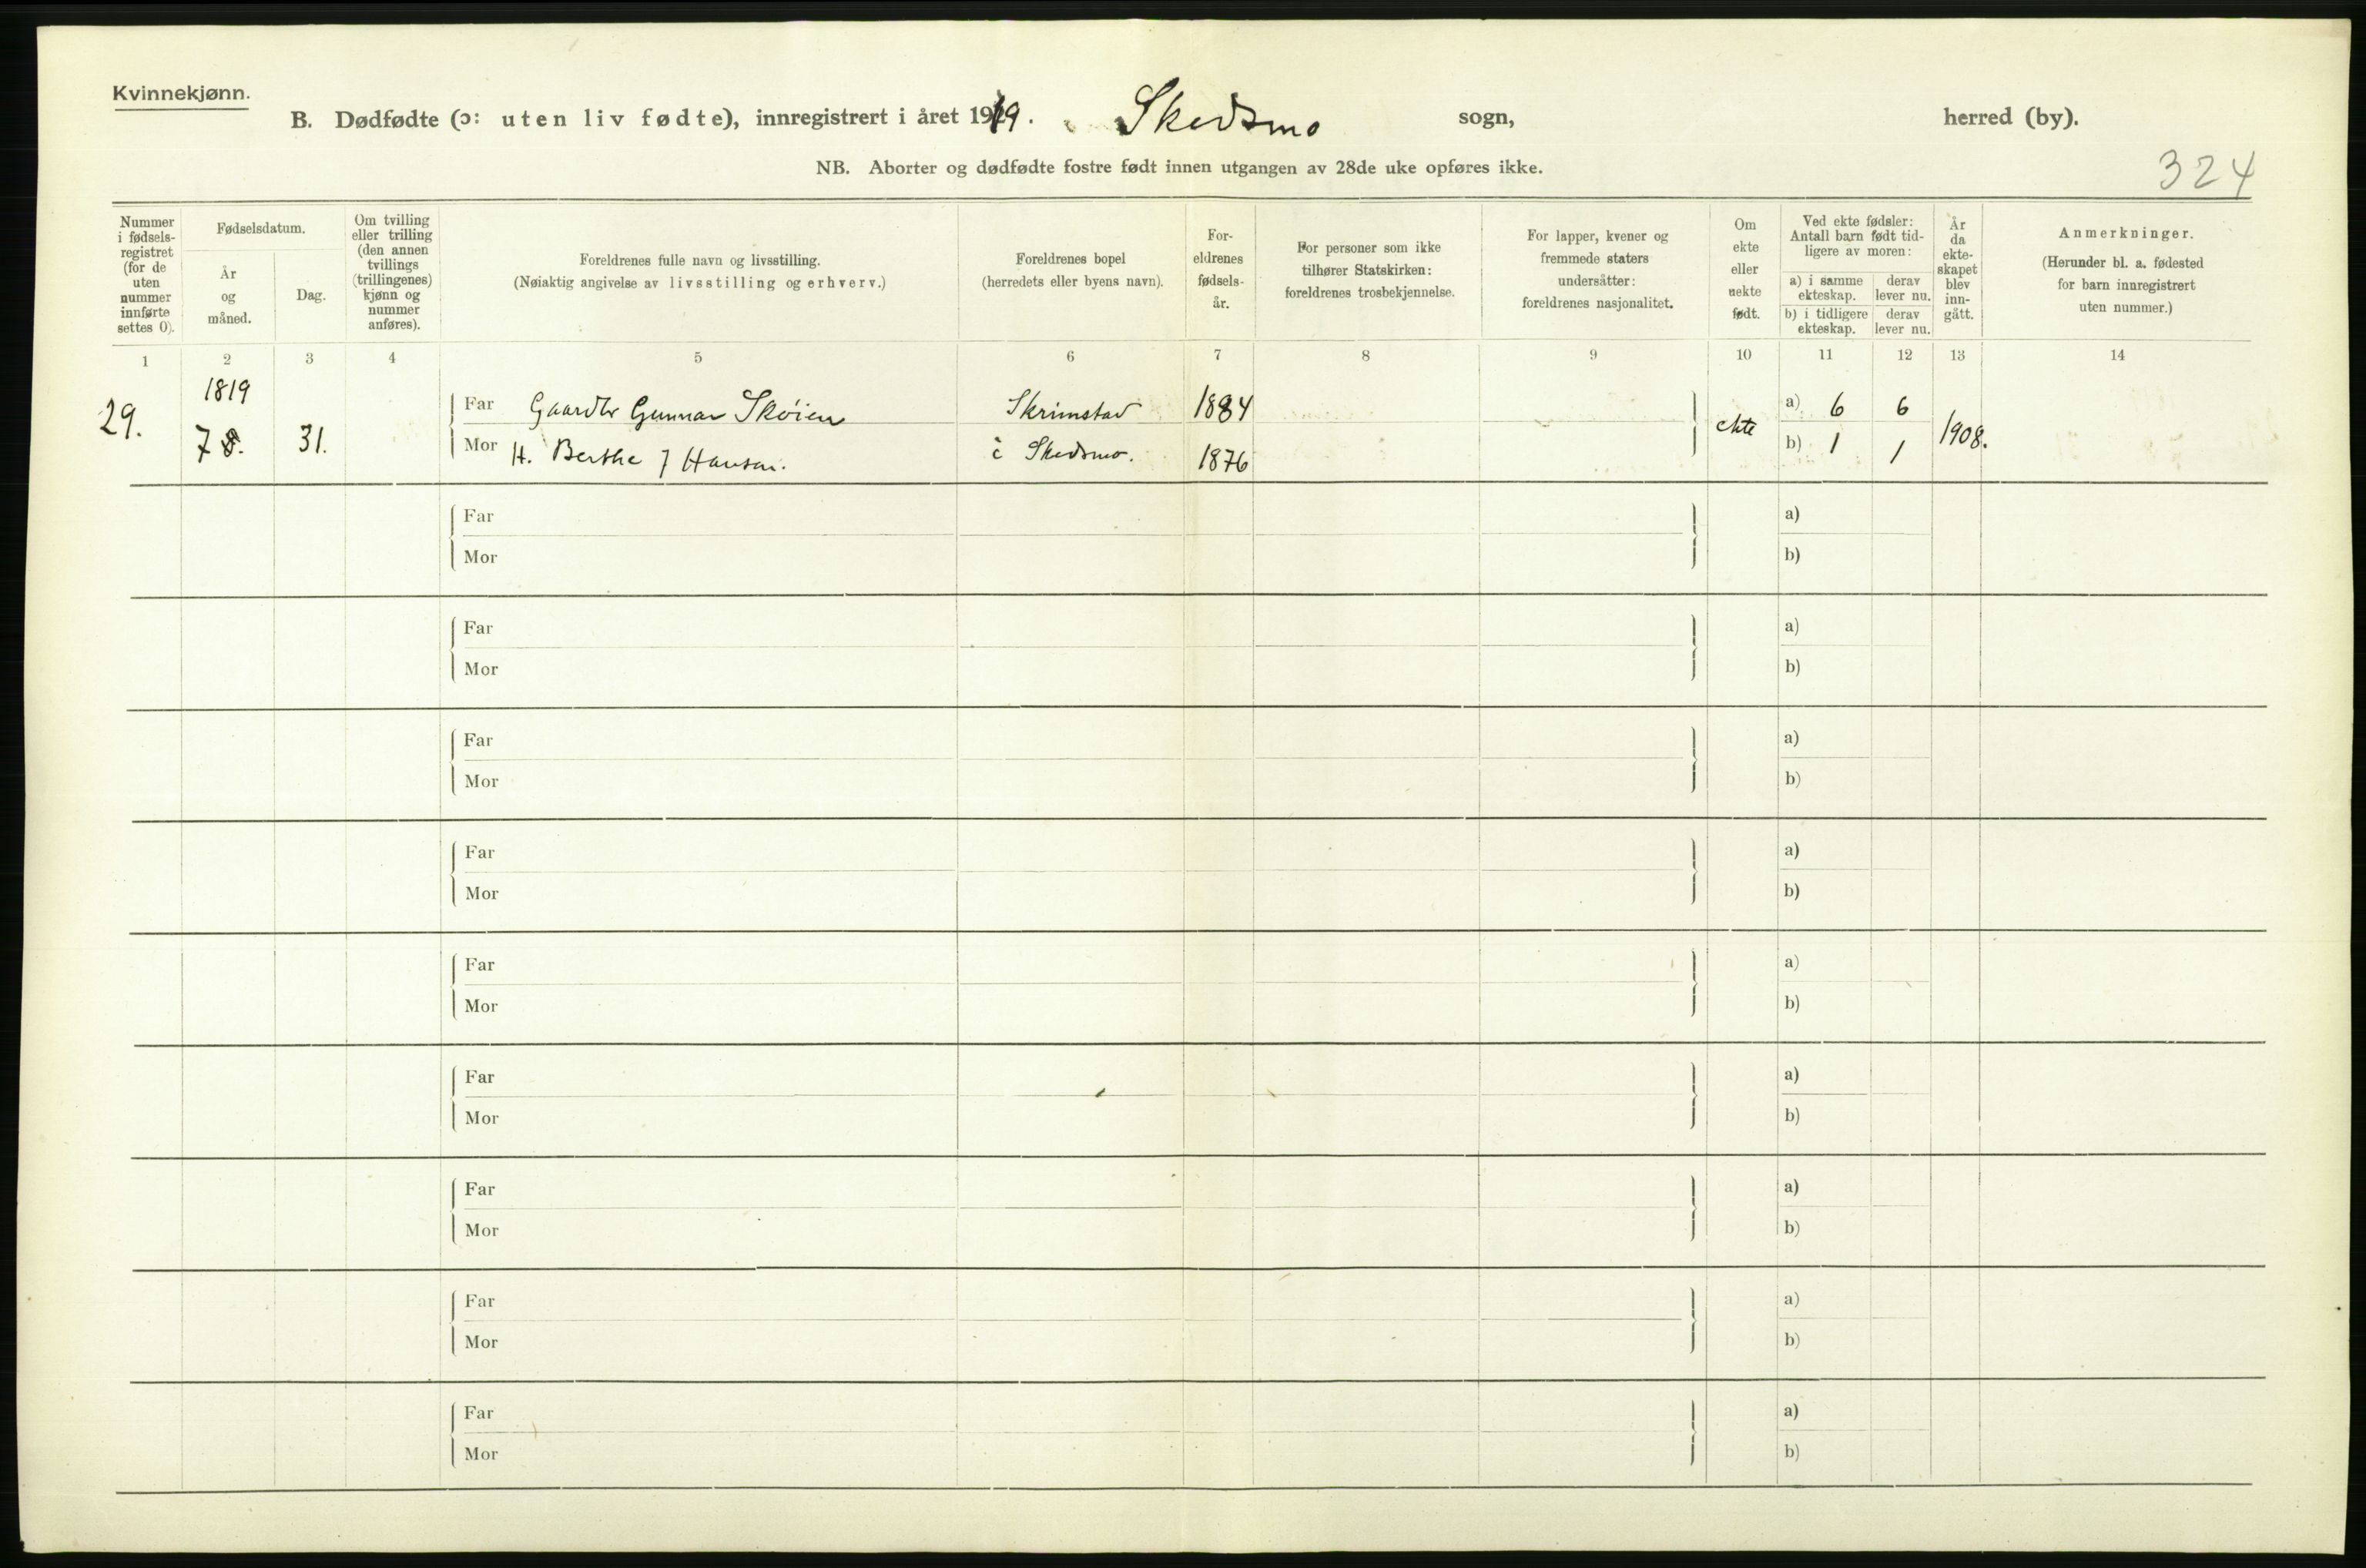 Kvinnekjønn.
B. Dødfødte (ɔ: uten liv fødte), innregistrert i året 1919. Skedsmo sogn, herred (by).
NB. Aborter og dødfødte fostre født innen utgangen av 28de uke opføres ikke.
324
Nummer i fødsels- registret (for de uten nummer innførte settes 0).
Fødselsdatum.
År og måned.
Dag.
Om tvilling eller trilling (den annen tvillings (trillingenes) kjønn og nummer anføres).
Foreldrenes fulle navn og livsstilling.
(Nøiaktig angivelse av livsstilling og erhverv.)
Foreldrenes bopel
(herredets eller byens navn).
For- eldrenes fødsels- år.
For personer som ikke tilhører Statskirken: foreldrenes trosbekjennelse.
For lapper, kvener og fremmede staters undersåtter: foreldrenes nasjonalitet.
Om ekte eller uekte født.
Ved ekte fødsler: Antall barn født tid- ligere av moren:
a) i samme ekteskap.
derav lever nu.
b) i tidligere ekteskap.
derav lever nu.
År da ekte- skapet blev inn- gått.
Anmerkninger.
(Herunder bl. a. fødested for barn innregistrert uten nummer.)
1 2 3 4 5 6 7 8 9 10 11 12 13 14
1819
29. 7 8. 31.
Far Gaardbr Gunnar Skøien Skrimstad 1884 a) 6 6
ekte 1908.
Mor H. Berthe J Hansen. i Skedsmo. 1876 b) 1 1
Far a)
Mor b)
Far a)
Mor b)
Far a)
Mor b)
Far a)
Mor b)
Far a)
Mor b)
Far a)
Mor b)
Far a)
Mor b)
Far a)
Mor b)
Far a)
Mor b)